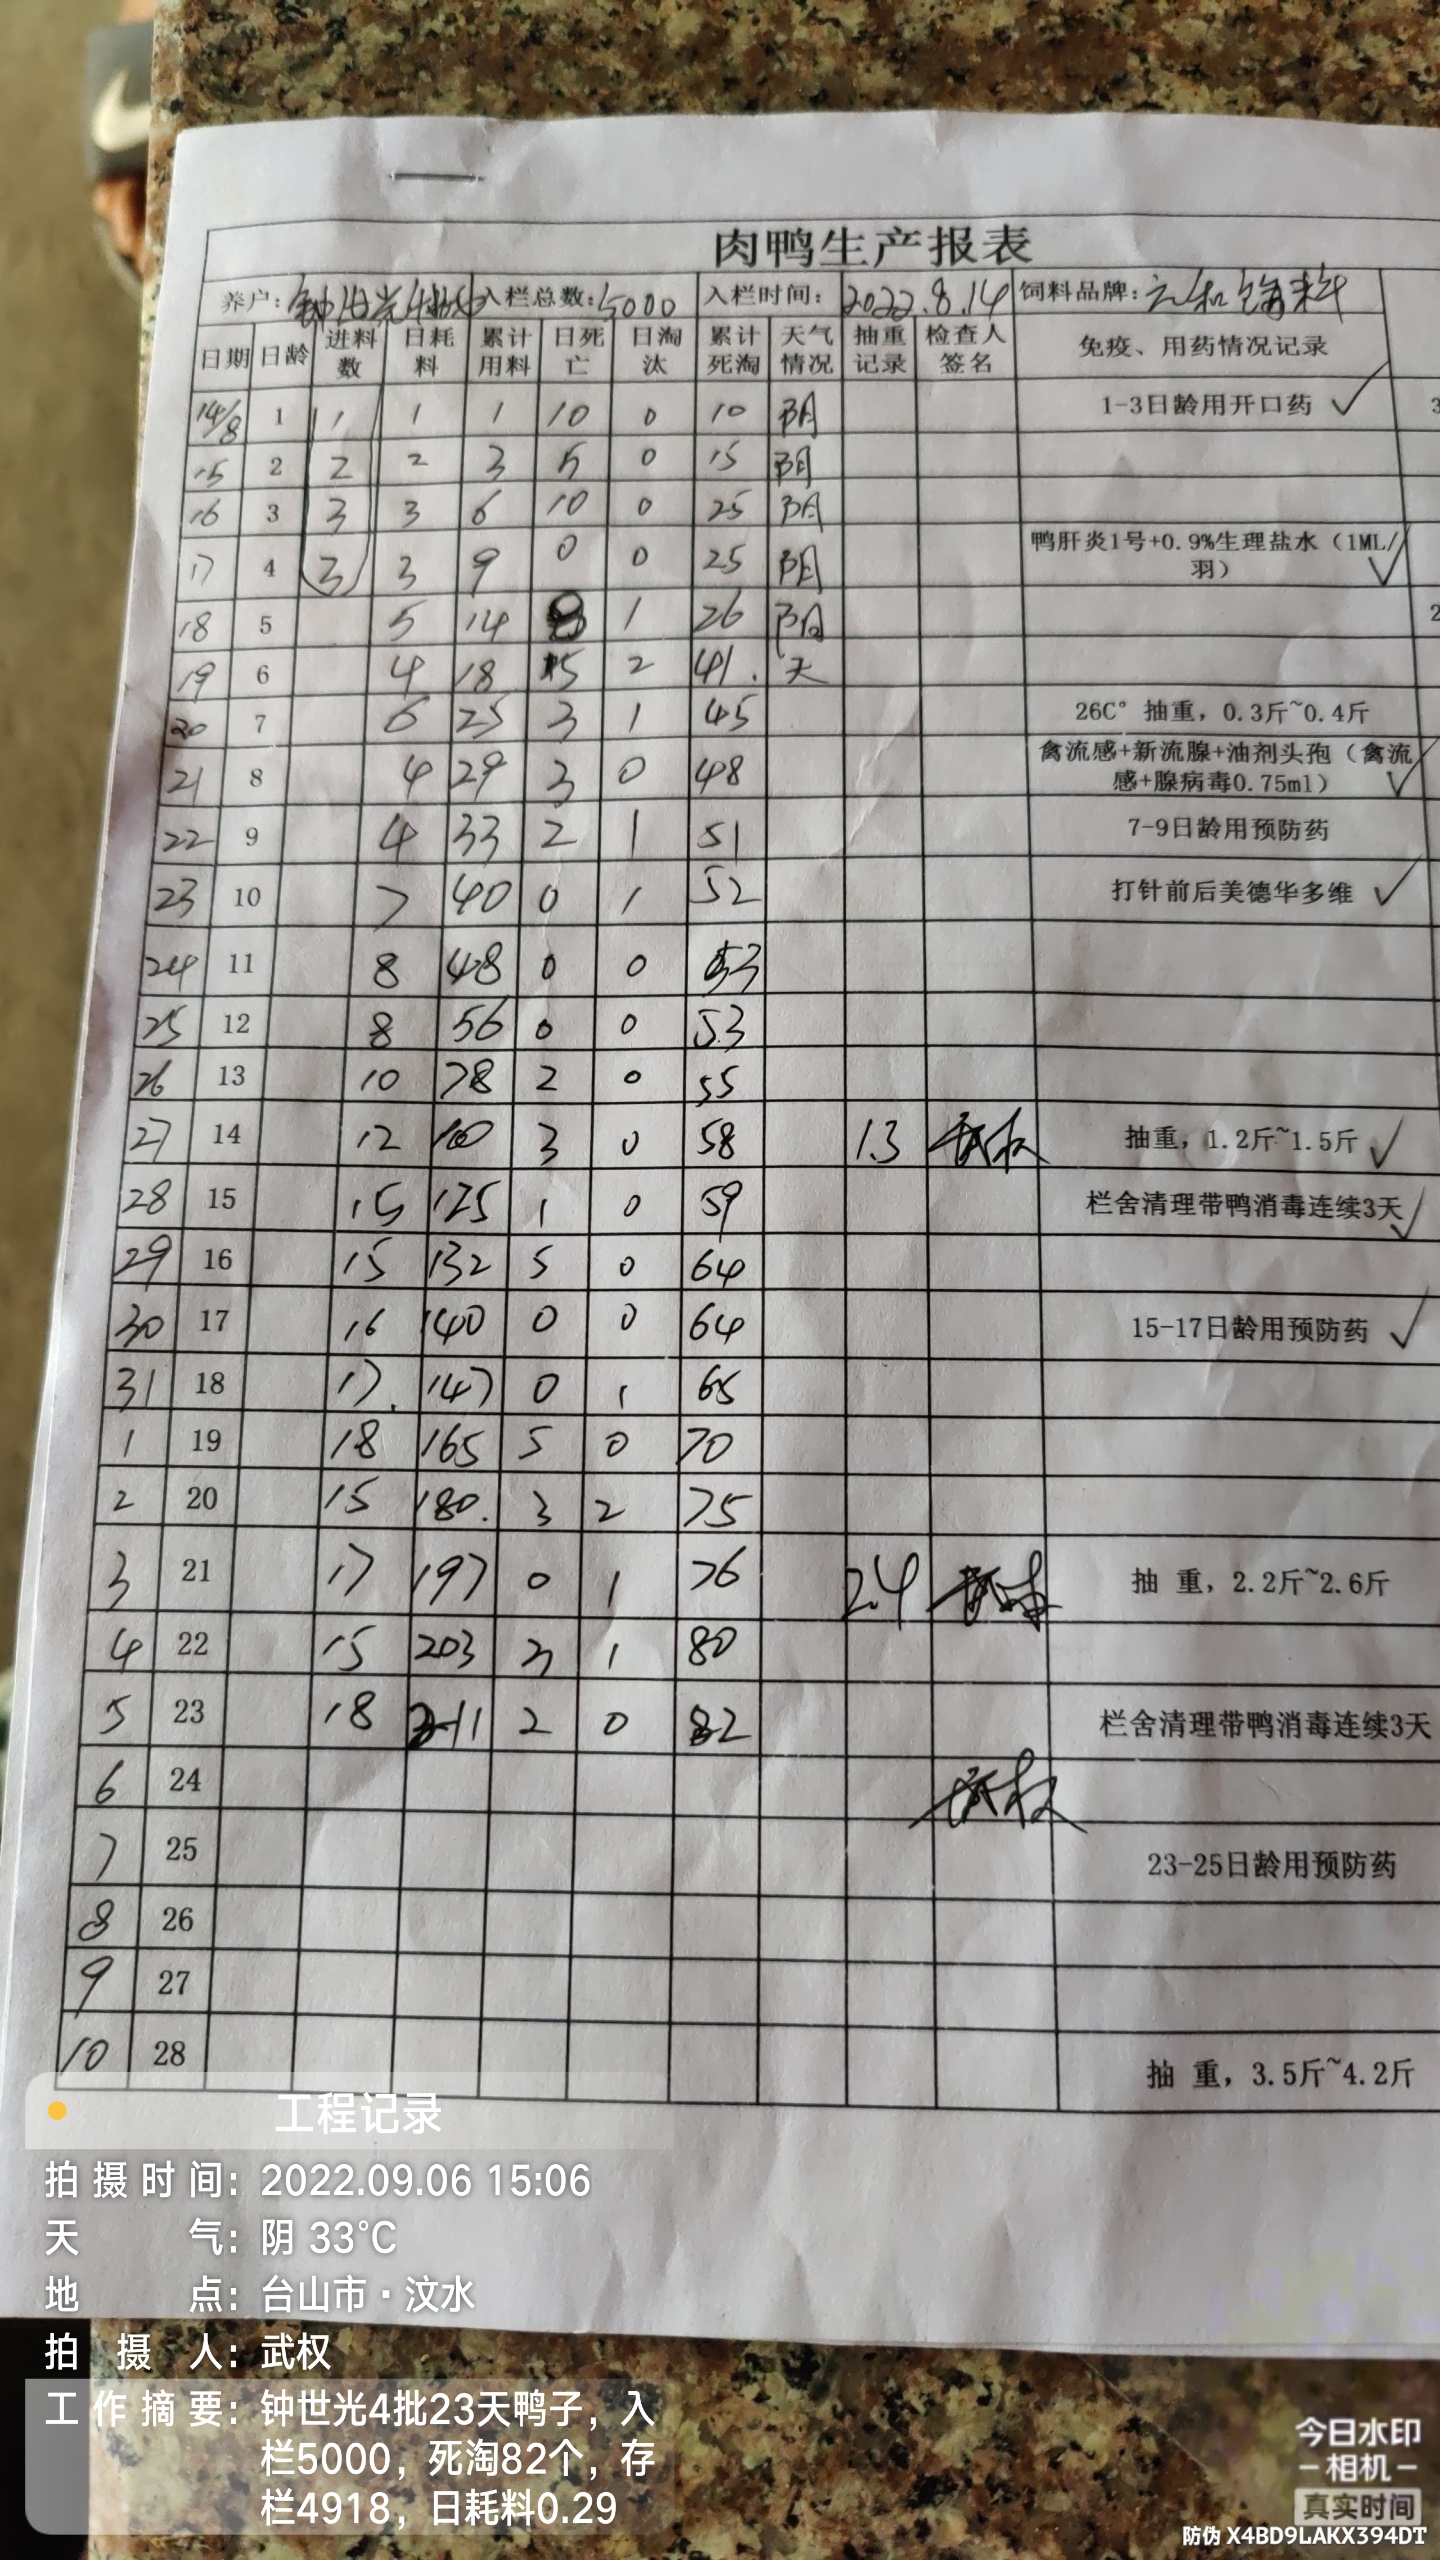 肉鸭生产报表
养户：钟世光4批 入栏总数：5000 入栏时间：2022.8.14 饲料品牌：
日期 日龄 进料数 日耗料 累计用料 日死亡 日淘汰 累计死淘 天气情况 抽重记录 检查人签名 免疫、用药情况记录
14/8 1 1 1 1 10 0 10 阴 1-3日龄用开口药 ✓
15 2 2 2 3 5 0 15 阴
16 3 3 3 6 10 0 25 阴
17 4 3 3 9 0 0 25 阴 鸭肝炎1号+0.9%生理盐水（1ML/羽） ✓
18 5 5 14 1 26 阴
19 6 4 18 15 2 41. 天
20 7 6 25 3 1 45 26C° 抽重，0.3斤~0.4斤
21 8 4 29 3 0 48 禽流感+新流腺+油剂头孢（禽流感+腺病毒0.75ml） ✓
22 9 4 33 2 1 51 7-9日龄用预防药
23 10 7 40 0 1 52 打针前后美德华多维 ✓
24 11 8 48 0 0 53
25 12 8 56 0 0 53
26 13 10 78 2 0 55
27 14 12 100 3 0 58 1.3 武权 抽重，1.2斤~1.5斤 ✓
28 15 15 125 1 0 59 栏舍清理带鸭消毒连续3天 ✓
29 16 15 132 5 0 64
30 17 16 140 0 0 64 15-17日龄用预防药 ✓
31 18 17. 147 0 1 65
1 19 18 165 5 0 70
2 20 15 180. 3 2 75
3 21 17 197 0 1 76 2.4 武权 抽 重，2.2斤~2.6斤
4 22 15 203 3 1 80
5 23 18 211 2 0 82 栏舍清理带鸭消毒连续3天
6 24 武权
7 25 23-25日龄用预防药
8 26
9 27
10 28 抽 重，3.5斤~4.2斤
工程记录
拍摄时间：2022.09.06 15:06
天气：阴 33℃
地点：台山市·汶水
拍摄人：武权
工作摘要：钟世光4批23天鸭子，入
栏5000，死淘82个，存
栏4918，日耗料0.29
今日水印
相机
真实时间
防伪 X4BD9LAKX394DT